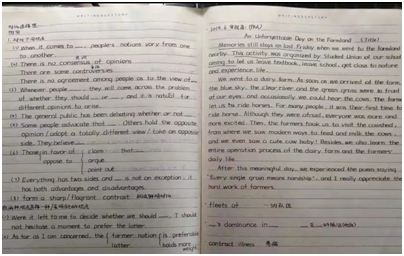 WRITING&KEYSTORY
(1) When it comes to ___, people's notions vary from one
to another.
(2) There is no consensus of opinions
There are some controversies
There is no agreement among people as to the view of
(3) Whenever people ___, they will come across the problem
of whether they should ___ or ___, and it is natural for
different opinions to arise.
(4) The general public has been debating whether or not ___.
(5) Some people advocate that ___. Others hold the opposite
opinion / adopt a totally different view / take an opposite
side. They believe ___
(6) Those in favor of claim that
opposed to argue
point out
(7) Everything has two sides and ___ is not an exception, it
has both advantages and disadvantages.
(8) form a sharp / flagrant contrast
Were it left to me to decide whether we should ___, I should
not hesitate a moment to prefer the latter.
As far as I am concerned, the former notion is preferable
latter holds more weight
An Unforgettable Day on the Farmland (title)
Memories still deep on last Friday when we went to the farmland
nearby. This activity was organized by Student Union of our school
aiming to let us leave textbook, leave school, get close to nature
and experience life.
We went to a dairy farm. As soon as we arrived at the farm,
the blue sky, the clear river and the green grass were in front
of our eyes, and occasionally, we could hear the cows. The farm
let us to ride horses. For many people, it was their first time to
ride horse. Although they were afraid, everyone was more and
more excited. Then the farmers took us to visit the cowshed,
from where we saw modern ways to feed and milk the cows
and we even saw a cute cow baby! Besides we also learn the
entire operation process of the dairy farm and the farmers'
daily life.
After this meaningful day, we experienced the poem saying
"Every single grain means hardship", and I really appreciate the
hard work of farmers.
fleets of
's dominance in
contract illness 患病